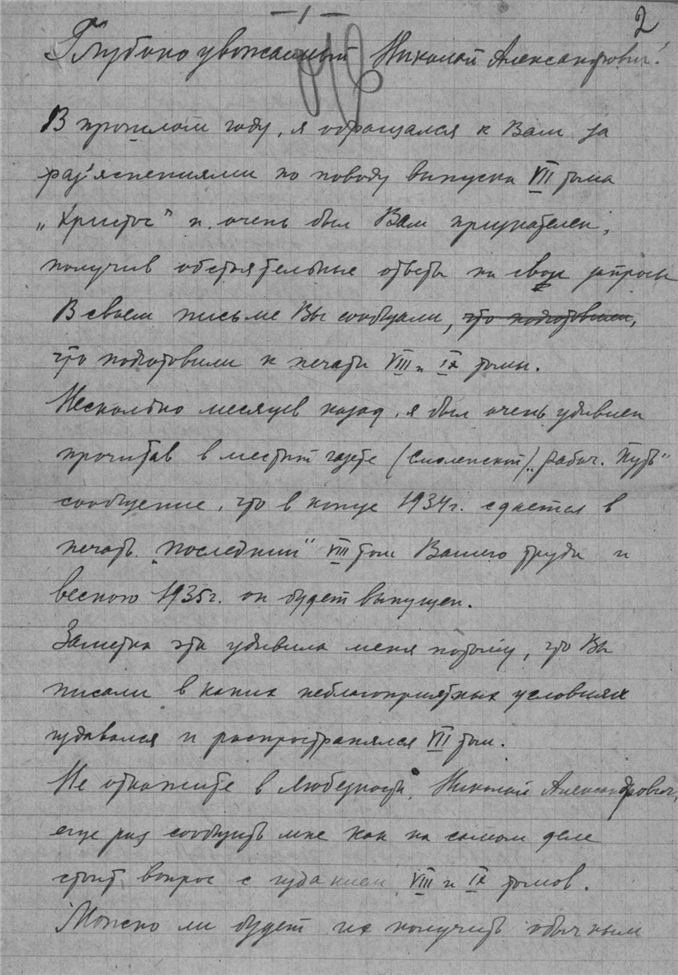 — 1 —
2
Глубоко уважаемый Николай Александрович!
В прошлом году, я обращался к Вам за
раз'яснениями по поводу выпуска VII тома
„Христос" и очень был Вам признателен,
получив обстоятельные ответы на свои запросы
В своем письме Вы сообщали, что подготовили,
что подготовили к печати VIII и IX томы.
Несколько месяцев назад, я был очень удивлен
прочитав в местной газете (Смоленской) „Рабоч. Путь"
сообщение, что в конце 1934 г. сдается в
печать „последний" VIII том Вашего труда и
весною 1935 г. он будет выпущен.
Заметка эта удивила меня потому, что Вы
писали в каких неблагоприятных условиях
издавался и распространялся VII том.
Не откажите в любезности, Николай Александрович,
еще раз сообщить мне как на самом деле
стоит вопрос с изданием VIII и IX томов.
Можно ли будет их получить обычным